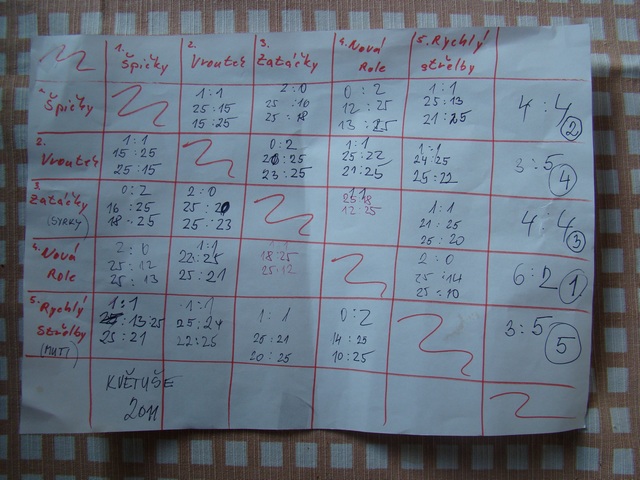 1. Špičky
2. Vrouteк
3. Zatáčky
4. Nová Role
5. Rychlý střelby
1. Špičky
1:1
25:15
15:25
2:0
25:10
25:18
0:2
12:25
13:25
1:1
25:13
21:25
4:4
2
2. Vroutek
1:1
15:25
25:15
0:2
20:25
23:25
1:1
25:22
21:25
1:1
24:25
25:22
3:5
4
3. Zatáčky
(SYRKY)
0:2
16:25
18:25
2:0
25:20
25:23
1:1
25:18
12:25
1:1
21:25
25:20
4:4
3
4. Nová Role
2:0
25:12
25:13
1:1
22:25
25:21
18:25
25:12
2:0
25:14
25:10
6:2
1
5. Rychlý Střelby
(MUTI)
1:1
13:25
25:21
1:1
25:24
22:25
1:1
25:21
20:25
0:2
14:25
10:25
3:5
5
KVĚTUŠE
2011